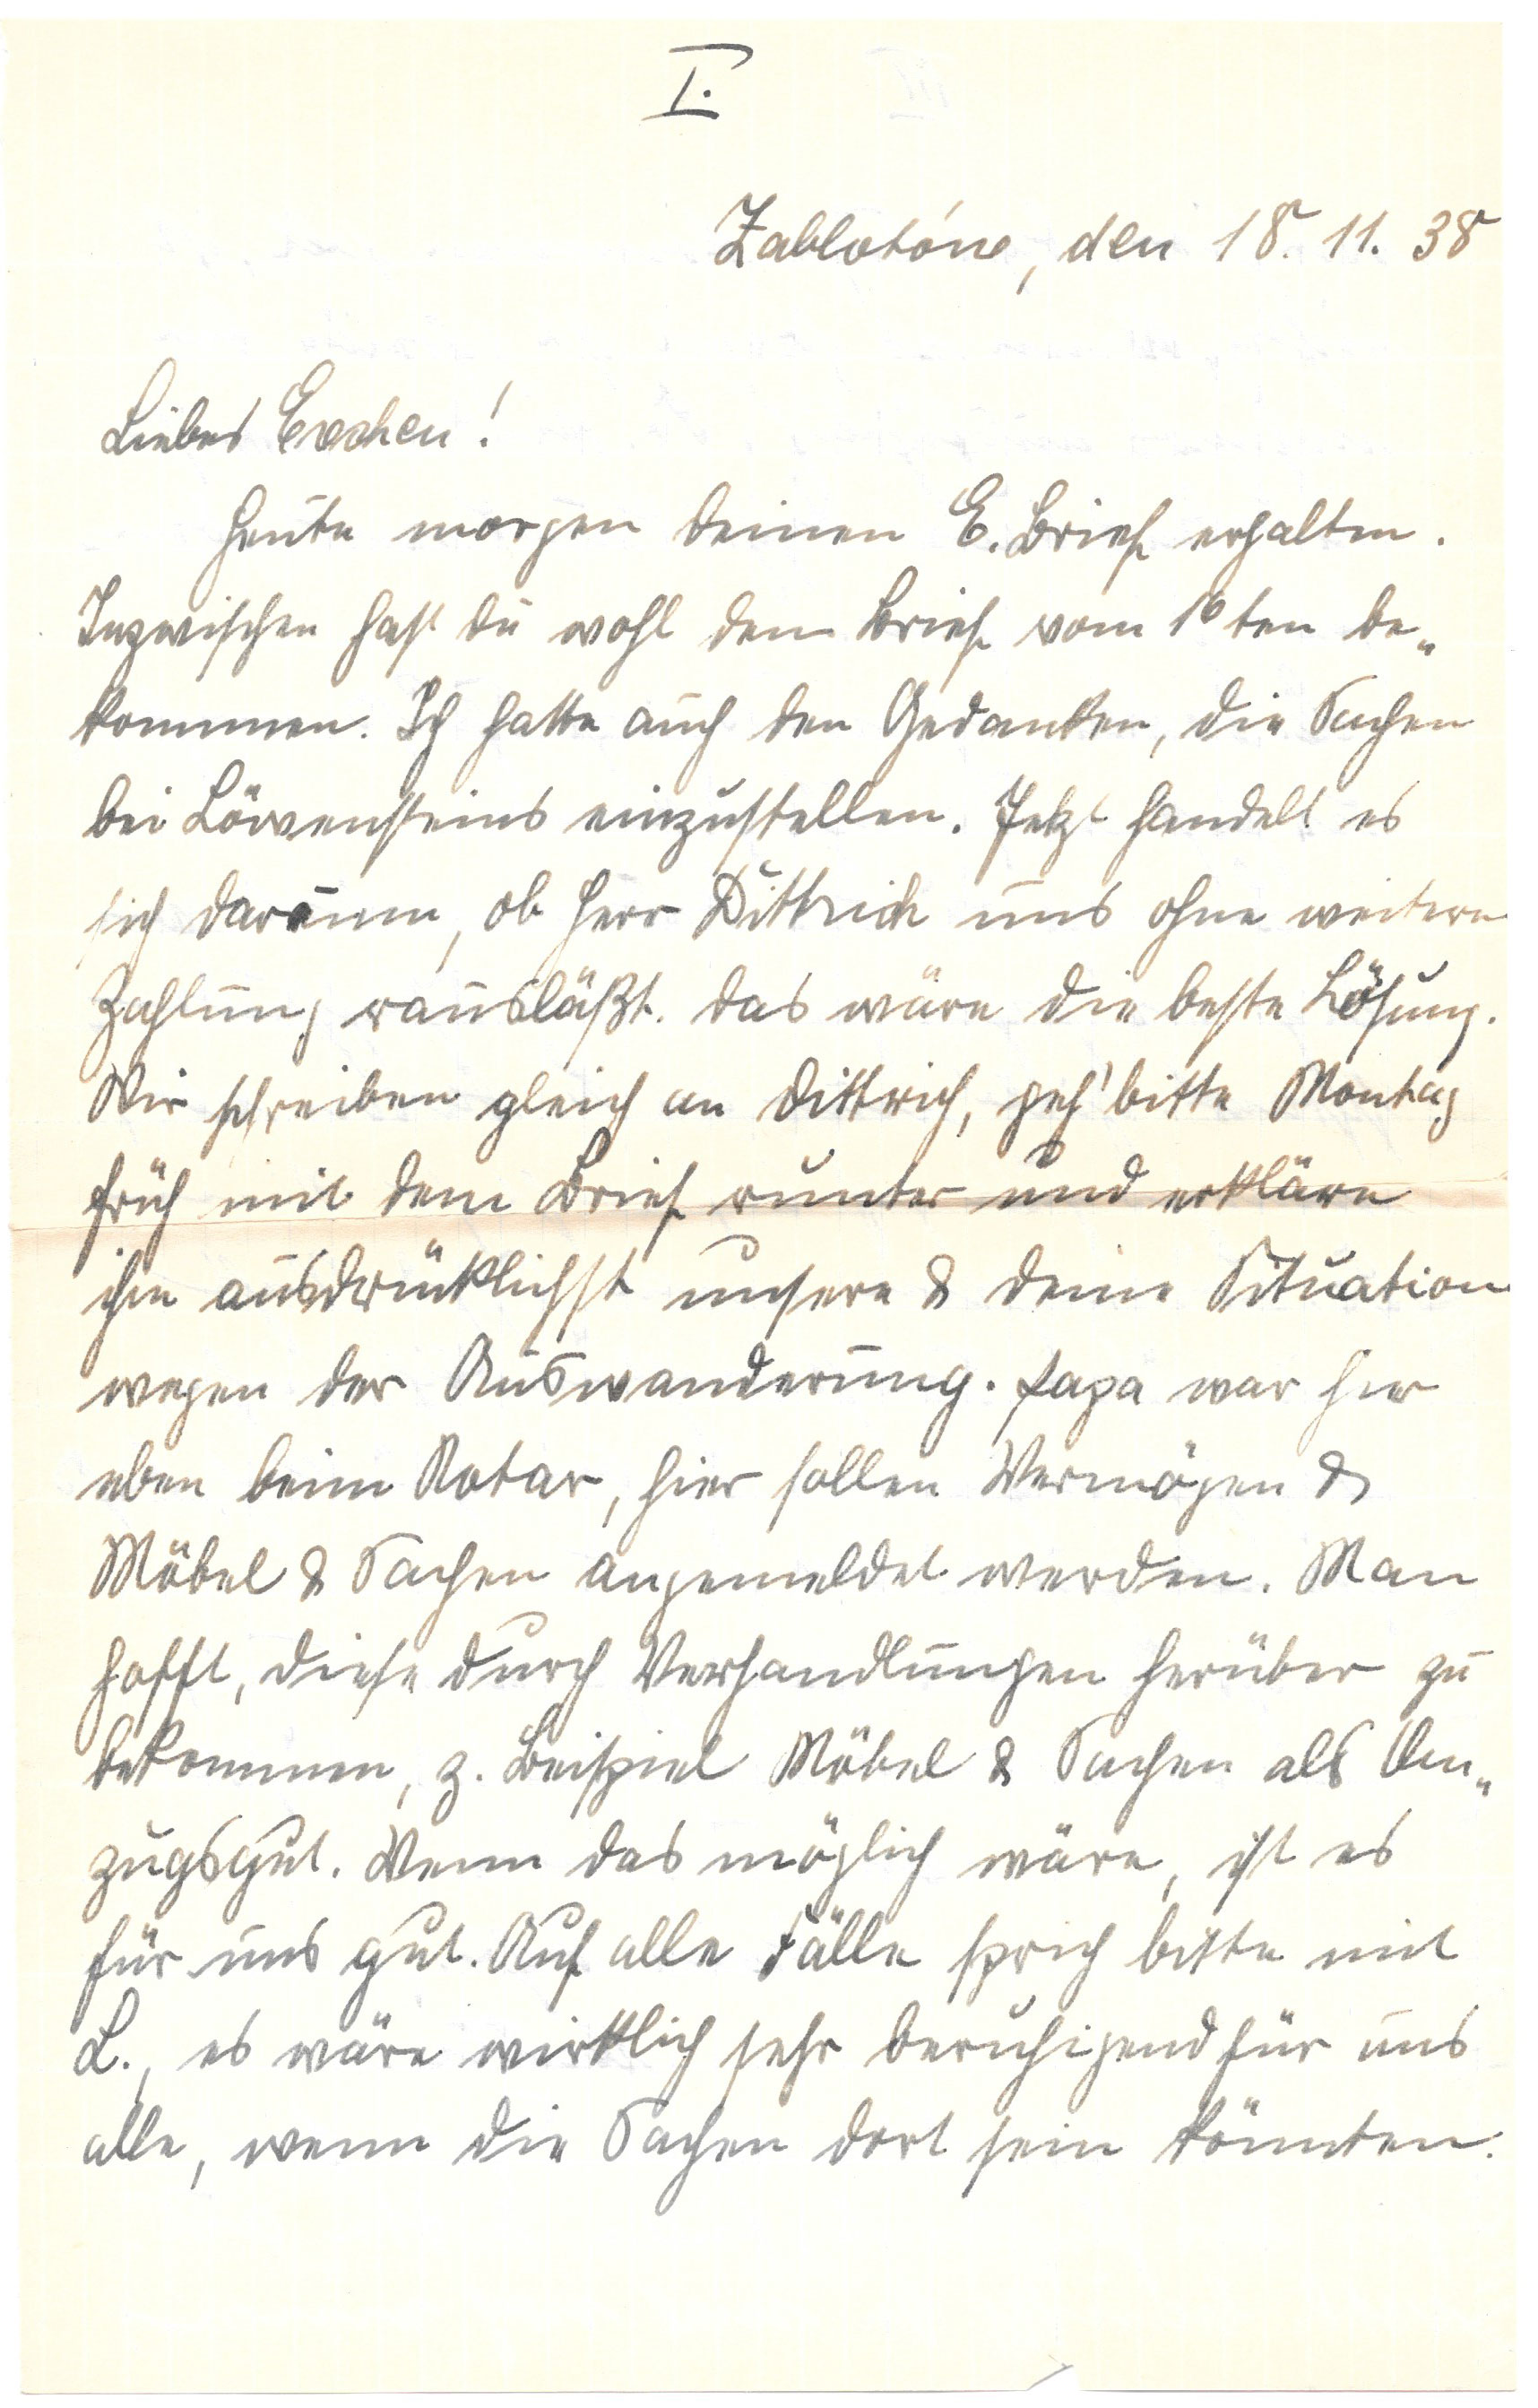 I.
Zablotóne, den 18. 11. 38
Liebes Evchen!
Heute morgen deinen E. Brief erhalten.
Inzwischen hast du wohl den Brief vom 16ten be„
kommen. Ich hatte auch den Gedanken, die Sachen
bei Löwensteins einzustellen. Jetzt handelt es
sich darum, ob Herr Dittrich uns ohne weitere
Zahlung rausläßt. Das wäre die beste Lösung.
Wir schreiben gleich an Dittrich, geh' bitte Montag
früh mit dem Brief runter und erkläre
ihm ausdrücklichst unsere & deine Situation
wegen der Auswanderung. Papa war hier
eben beim Notar, hier sollen Vermögen &
Möbel & Sachen angemeldet werden. Man
hofft, diese durch Verhandlungen herüber zu
bekommen, z. Beispiel Möbel & Sachen als Um„
zugsgut. Wenn das möglich wäre, ist es
für uns gut. Auf alle Fälle sprich bitte mit
L., es wäre wirklich sehr beruhigend für uns
alle, wenn die Sachen dort sein könnten.